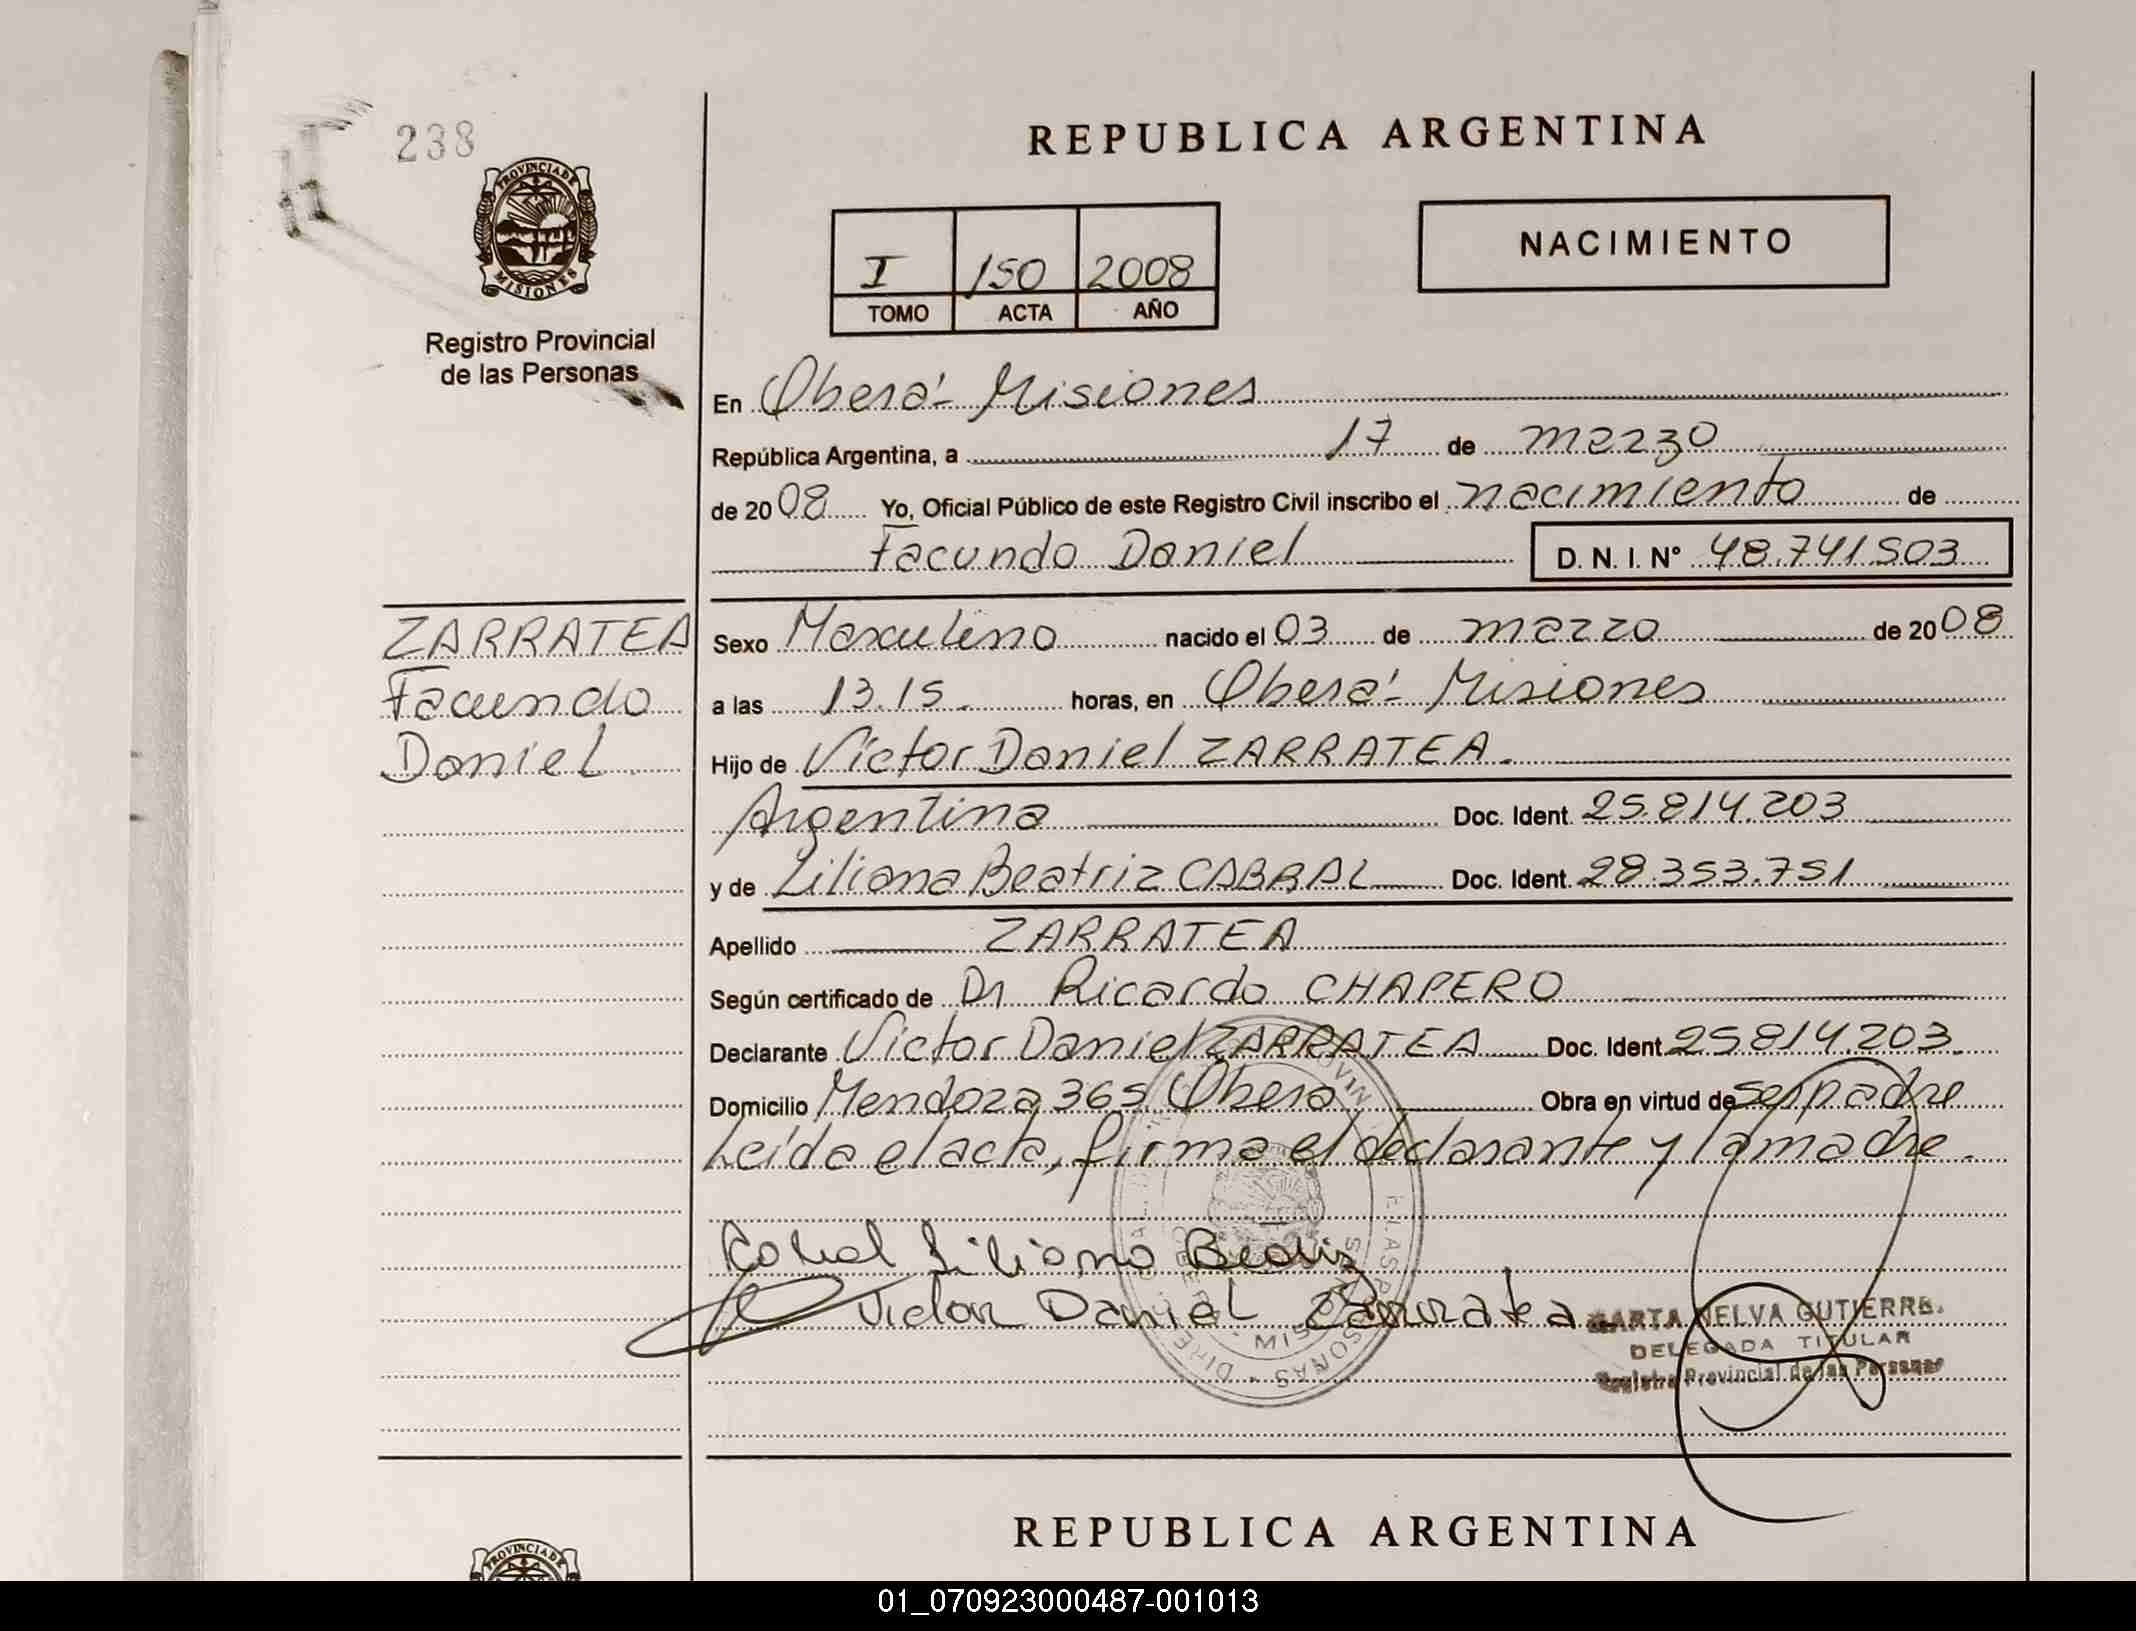 238
PROVINCIA DE
MISIONES
Registro Provincial
de las Personas
REPUBLICA ARGENTINA
I 150 2008
TOMO ACTA AÑO
NACIMIENTO
En Oberá - Misiones
República Argentina, a 17 de marzo
de 2008 Yo, Oficial Público de este Registro Civil inscribo el nacimiento de
Facundo Daniel D. N. I. N° 48.741.503
ZARRATEA
Facundo
Daniel
Sexo Masculino nacido el 03 de marzo de 2008
a las 13.15. horas, en Oberá - Misiones
Hijo de Víctor Daniel ZARRATEA.
Argentina Doc. Ident. 25.814.203
y de Liliana Beatriz CABRAL Doc. Ident. 28.353.751
Apellido ZARRATEA
Según certificado de Dr Ricardo CHAPERO
Declarante Víctor Daniel ZARRATEA Doc. Ident. 25814.203.
Domicilio Mendoza 365 Oberá Obra en virtud de ser padre
Leída el acta, firma el declarante y la madre.
Liliana
Victor Daniel Zarratea
NELVA GUTIERRE
DELEGADA TITULAR
Registro Provincial de las Personas
REPUBLICA ARGENTINA
PROVINCIA DE
01_070923000487-001013